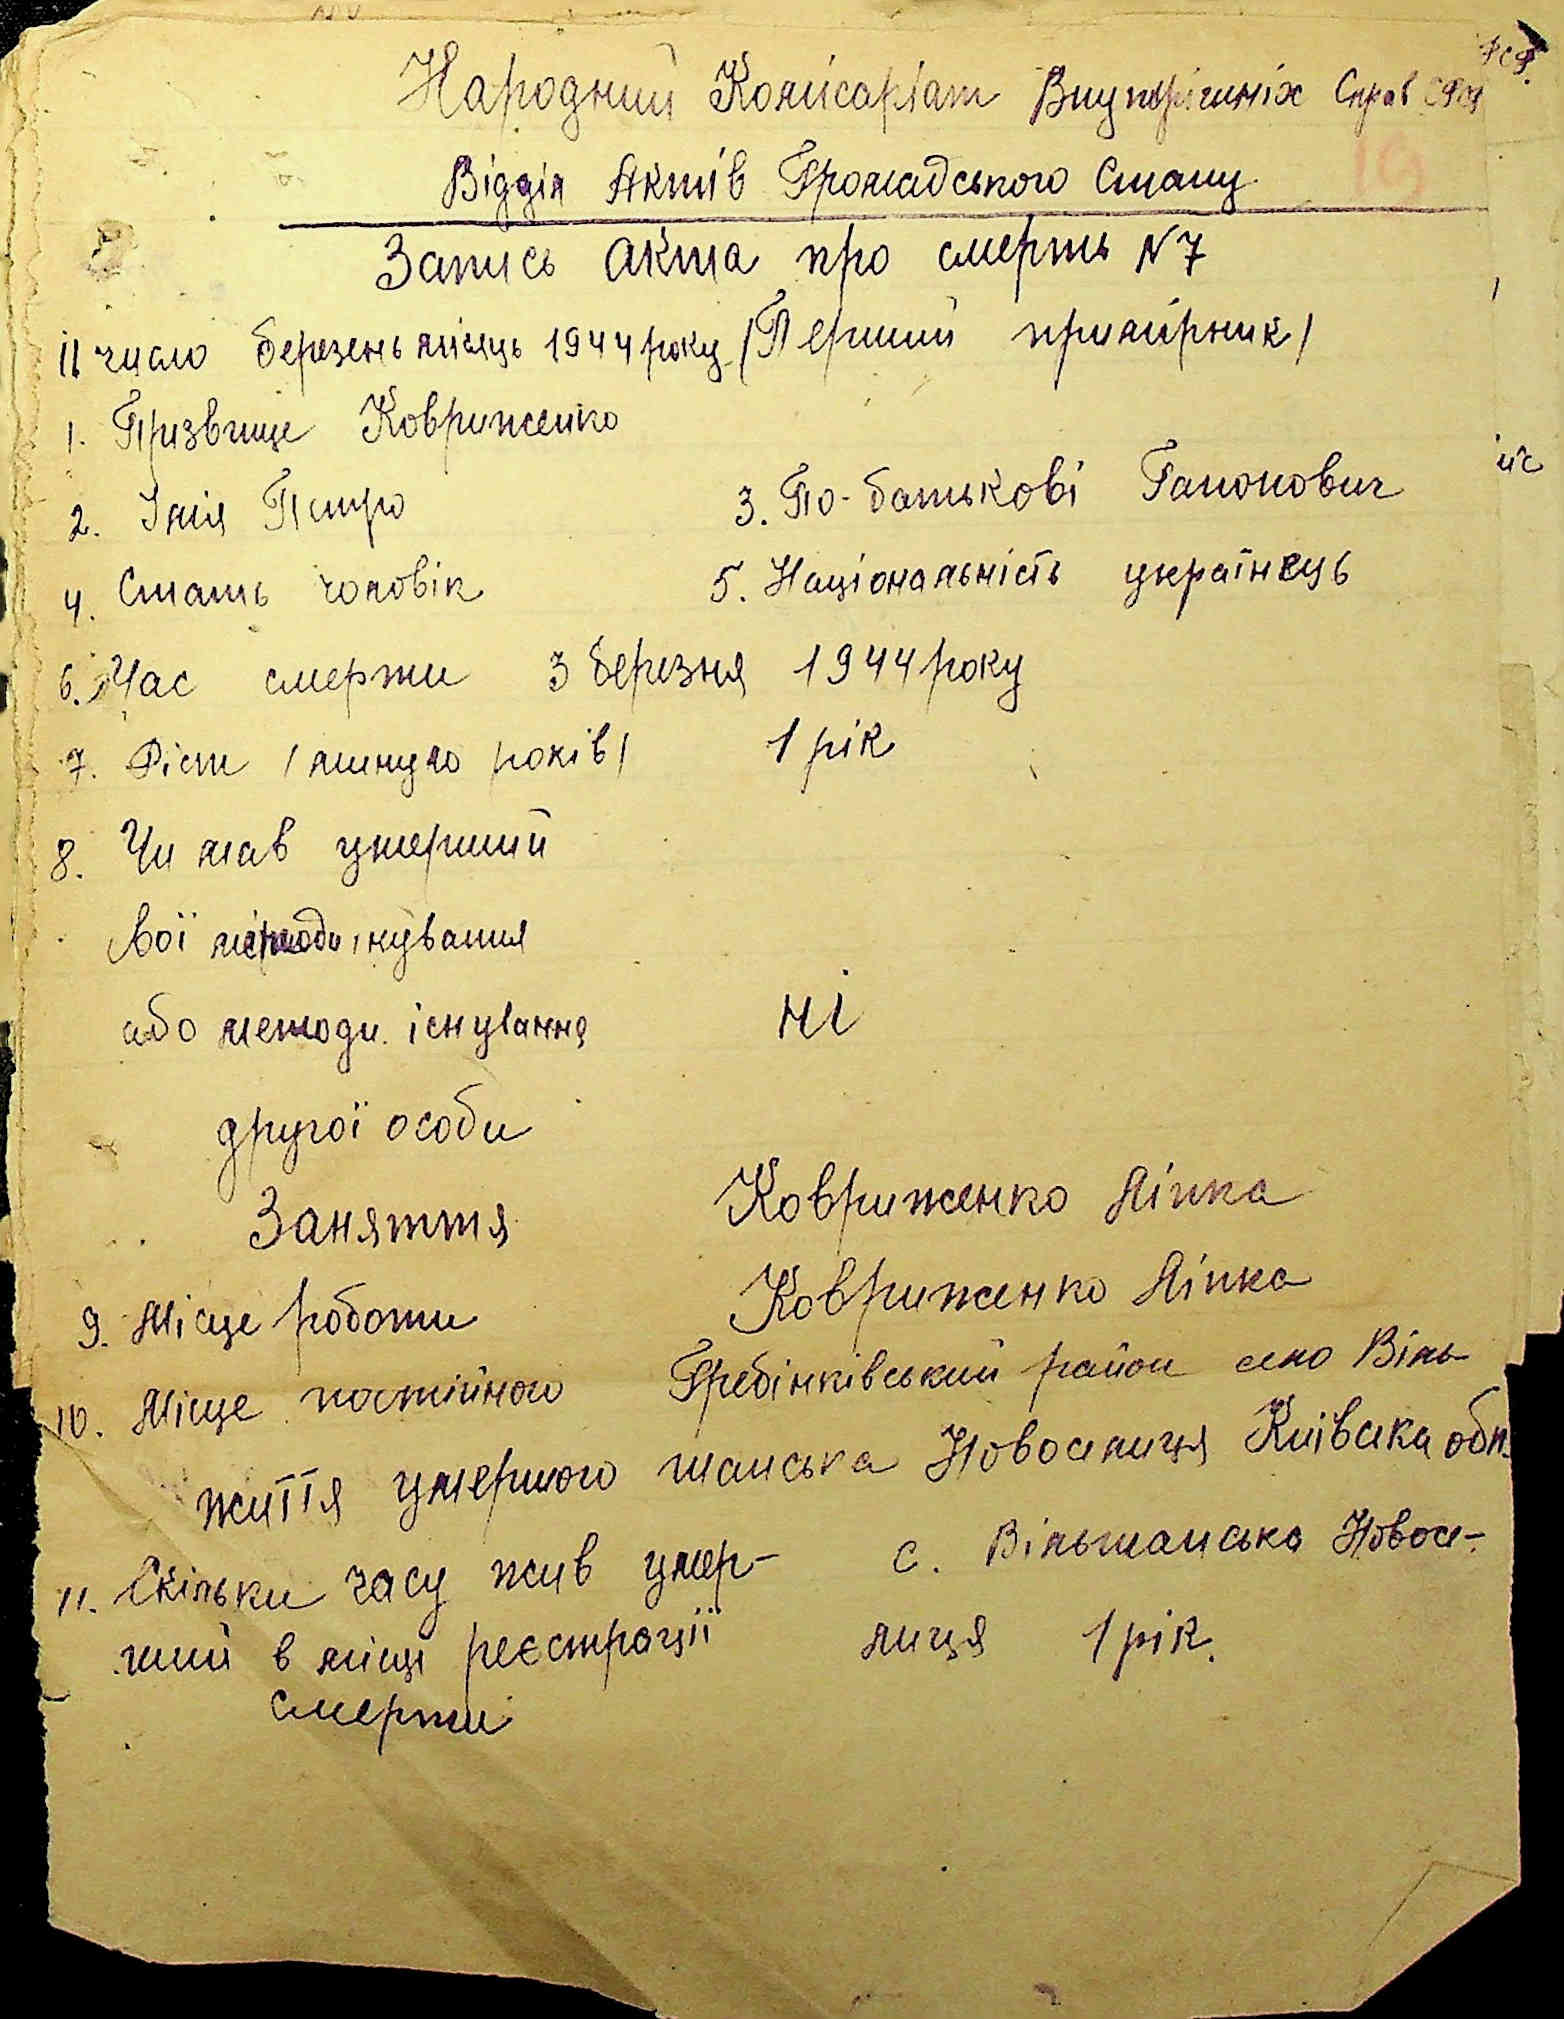 Народний Комісаріат Внутрішніх Справ
Відділ Актів Громадського Стану
19
Запись акта про смерть N 7
11 число березень місяць 1944 року /Перший примірник/
1. Призвище Ковриженко
2. Імія Петро 3. По-батькові Гапонович
4. Стать чоловік 5. Національність українець
6. Час смерти 3 березня 1944 року
7. Ріст /минуло років/ 1 рік
8. Чи мав умерший
свої існування
або методи існування ні
другої особи
Заняття Ковриженко Ліпка
9. Місце роботи Ковриженко Ліпка
10. Місце постійного Гребінківський район село Віль-
життя умершого шанська Новоселиця Київска обл.
11. Скільки часу жив умер- с. Вільшанська Новосе-
ший в місці реєстрації лиця 1 рік.
смерти